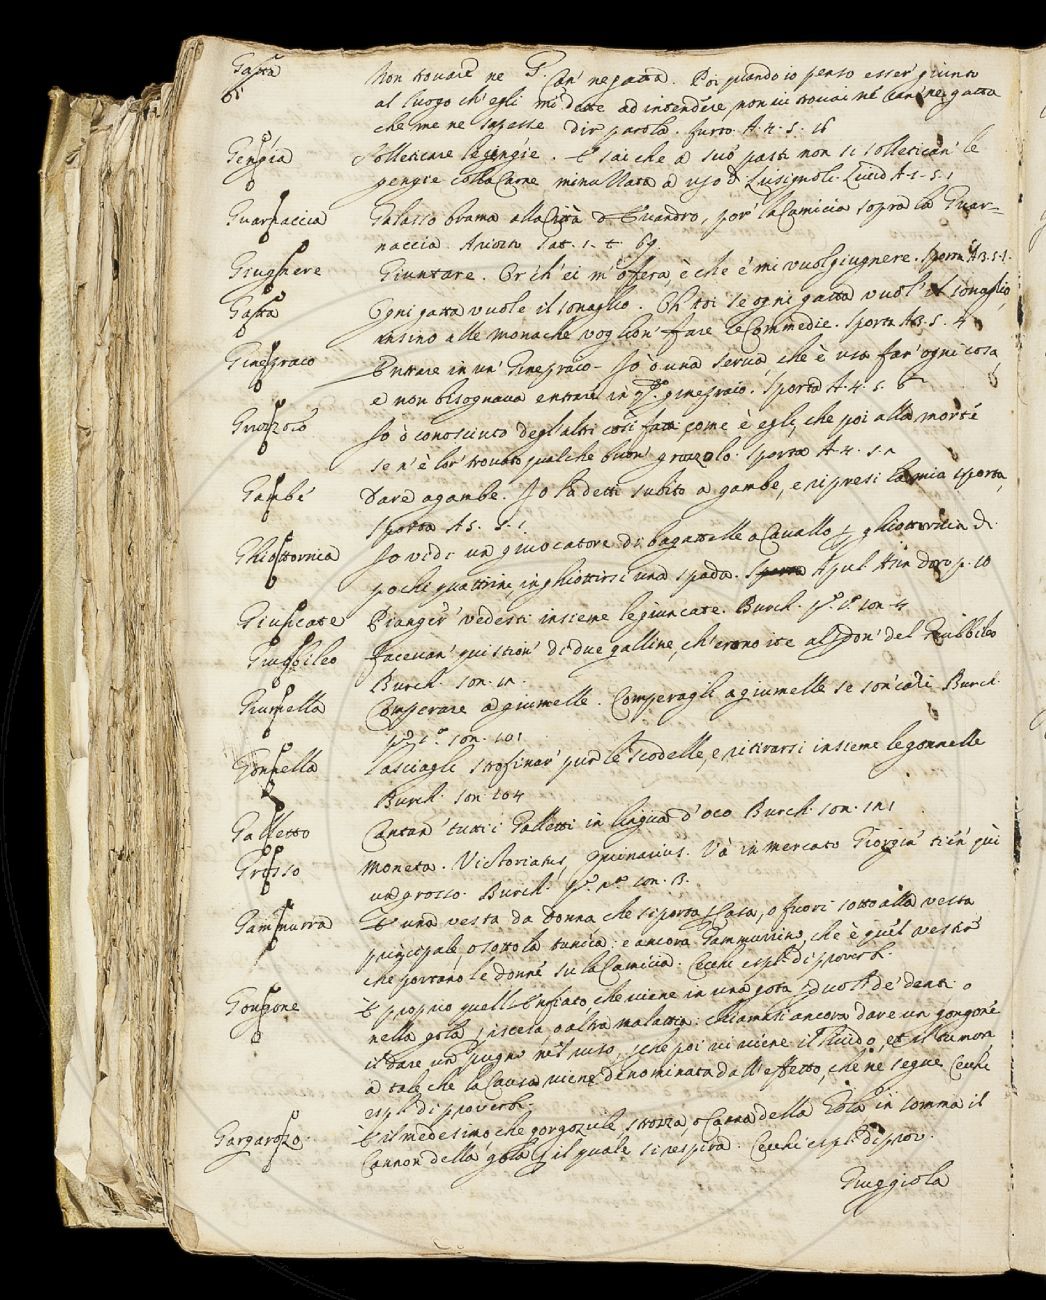 G.
Gatta Non trovare ne Can' ne gatta. Poi quando io penso esser' giunto
al luogo ch'egli mi dette ad intendere, non vi trovai né Can' ne gatta
che me ne sapesse dir parola. furto A. 4. s. 16
Gengia Solleticare le gengie. E sai che a suo pasti non si solletican' le
gengie colla Carne minuzzata a uso di Lusignoli. Lucid A. 1. s. 1
Guarnaccia Galasso brama alla Città d'Evandro, por' la Camicia sopra la Guar-
naccia. Ariosto Sat. 1. t. 69.
Giugnere Giuntare. Or ch'ei m'ofera, è che e' mi vuol giugnere. Sporta A 3. s. 1.
Gatta Ogni gatta vuole il sonaglio. Oh poi se ogni gatta vuol' il sonaglio,
insino alle Monache voglion' fare le Commedie. Sporta A 3. s. 4
Ginepraio Entrare in un' Ginepraio. Io ò una serva, che è usa far' ogni cosa,
e non bisognava entrare in qto. ginepraio. Sporta A. 4. s. 6
Gruzzolo Io ò conosciuto degl'altri così fatti come è egli, che poi alla morte
se n'è lor' trovato qualche buon' gruzolo. Sporta A. 4. s.
Gambe Dare a gambe. Io la detti subito a gambe, e ripresi la mia sporta,
Sporta A 5. s. 1
Ghiottornia Io vidi un giuocatore di bagattelle a Cavallo p ghiottornia di
pochi quattrini, inghiottirsi una spada. Apul Asin doro p. 10
Giuncate Pianger' vedesti insieme le giuncate. Burch. pe. pa. son. 4
Giubbileo Facevan' quistion' di due galline, ch'erono ite al Perdon' del Giubbileo
Burch. son.
Giumella Comperare a giumelle. Comperagli a giumelle se son' cari Burch.
pe. pa. son. 101
Gonnella Lasciagli strofinar' pur le scodelle, e ritirarsi insieme le gonnelle
Burch. son. 104
Galletto Cantan' tutti i Galletti in lingua d'oco Burch. son. 121
Grosso Moneta. Victoriatus, Quinarius. Và in mercato Giorgia' tien' qui
un grosso. Burch. son.
Gammurra E una vesta da donna che si porta p Casa, o fuori sotto alla vesta
principale, o sotto la tunica: e ancora Gammurrino, che è quel vestito
che portano le donne su la Camicia. Cecchi espl. di proverb.
Gongone E proprio quell'Enfiato, che viene in una gota p duolo de' denti o
nella gola, p scesa, o altra malattia: chiamasi ancora dare un gongone
il dare un pugno nel viso, p che poi vi viene il livido, et il tumore
a tal che la Causa viene denominata dall'effetto, che ne segue Cecchi
espl. di proverbi.
Gargarozzo E il medesimo che gorgozule strozza, o Canna della Gola in somma il
Cannon della gola p il quale si respira. Cecchi espl. di prov.
Giuggiola